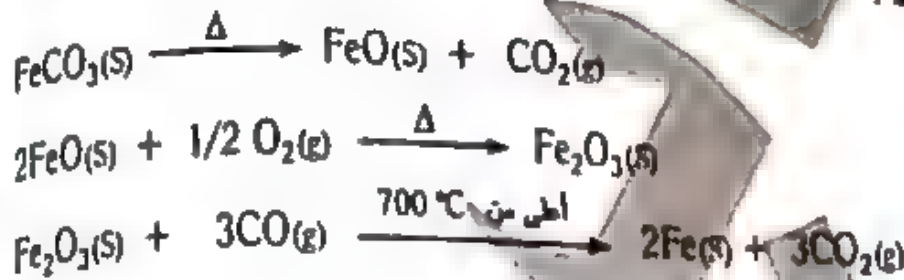 FeCO₃(S) —Δ→ FeO(S) + CO₂(g)
2FeO(S) + 1/2 O₂(g) —Δ→ Fe₂O₃(S)
Fe₂O₃(S) + 3CO(g) —اعلى من 700 °C→ 2Fe(S) + 3CO₂(g)